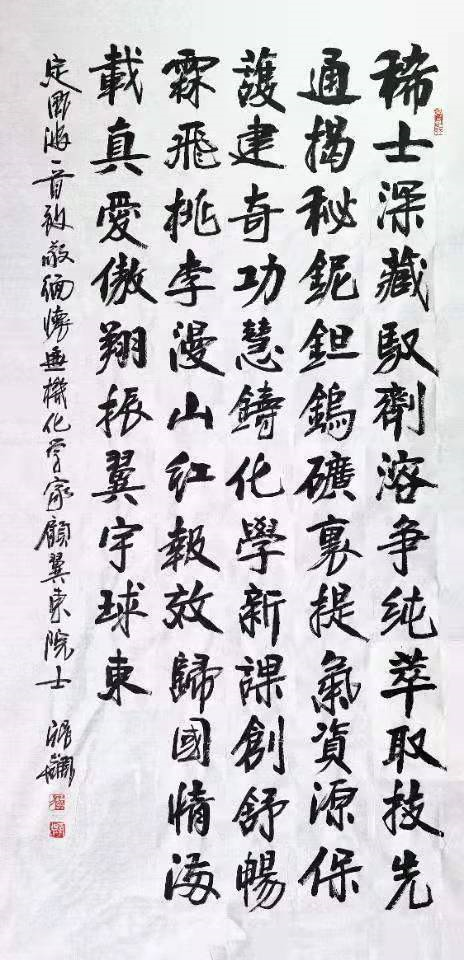 稀土深藏馭劑溶争纯萃取技先
通揭秘鈮鉭鎢礦裏提氣資源保
護建奇功慧鑄化學新課創舒暢
霖飛桃李漫山紅報效歸國情海
載真愛傲翔振翼宇球東
定風波一首致敬緬懷無機化学家顧翼東院士